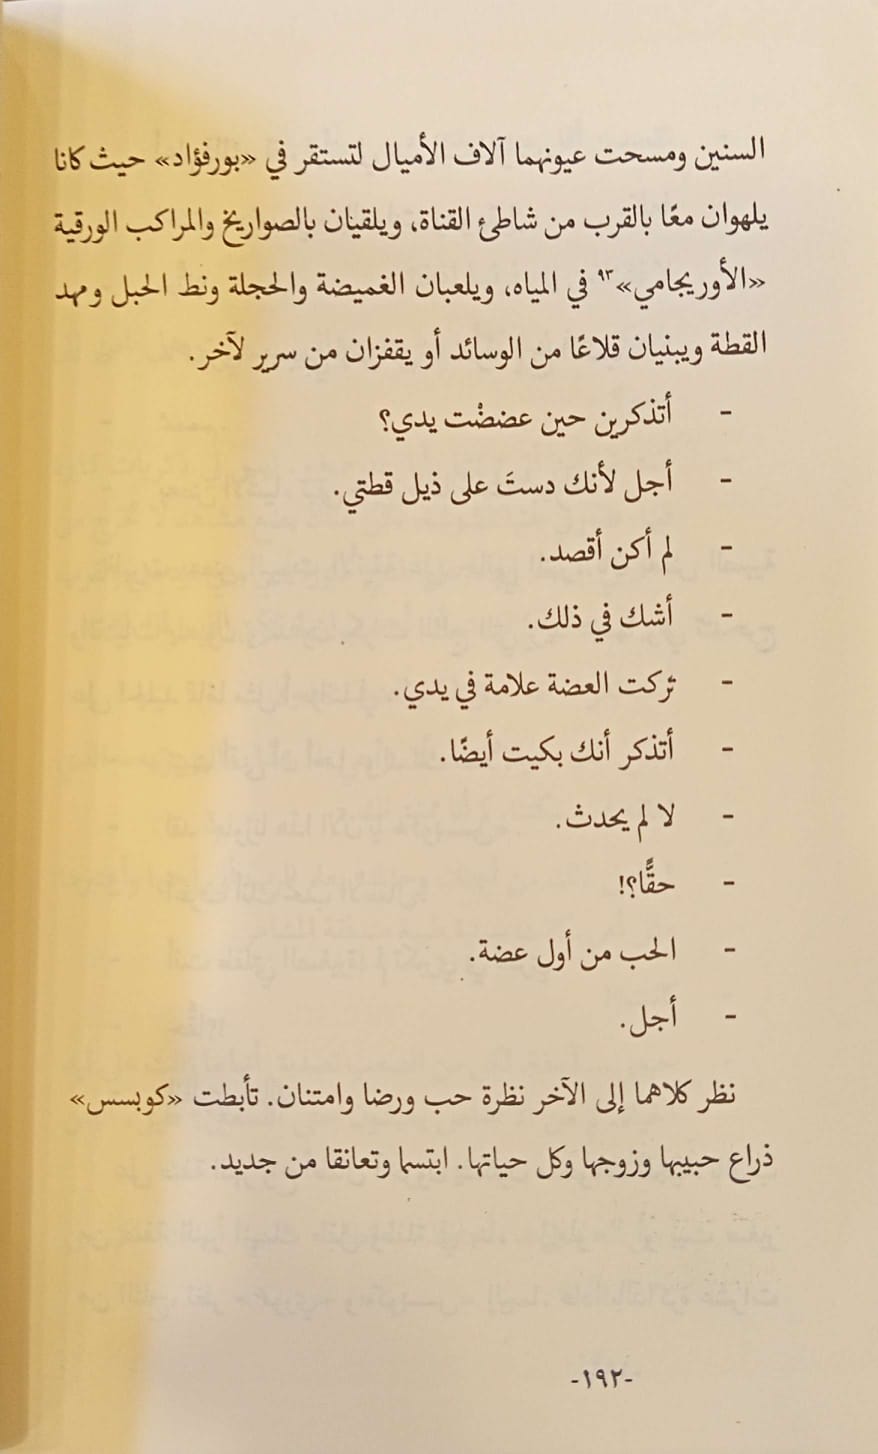 السنين ومسحت عيونهما آلاف الأميال لتستقر في «بورفؤاد» حيث كانا
يلهوان معًا بالقرب من شاطئ القناة، ويلقيان بالصواريخ والمراكب الورقية
«الأوريجامي»٩٣ في المياه، ويلعبان الغميضة والحجلة ونط الحبل ومهد
القطة ويبنيان قلاعًا من الوسائد أو يقفزان من سرير لآخر.
- أتذكرين حين عضضْت يدي؟
- أجل لأنك دستَ على ذيل قطتي.
- لم أكن أقصد.
- أشك في ذلك.
- تركت العضة علامة في يدي.
- أتذكر أنك بكيت أيضًا.
- لا لم يحدث.
- حقًّا؟!
- الحب من أول عضة.
- أجل.
نظر كلاهما إلى الآخر نظرة حب ورضا وامتنان. تأبطت «كوبسس»
ذراع حبيبها وزوجها وكل حياتها. ابتسما وتعانقا من جديد.
-١٩٢-